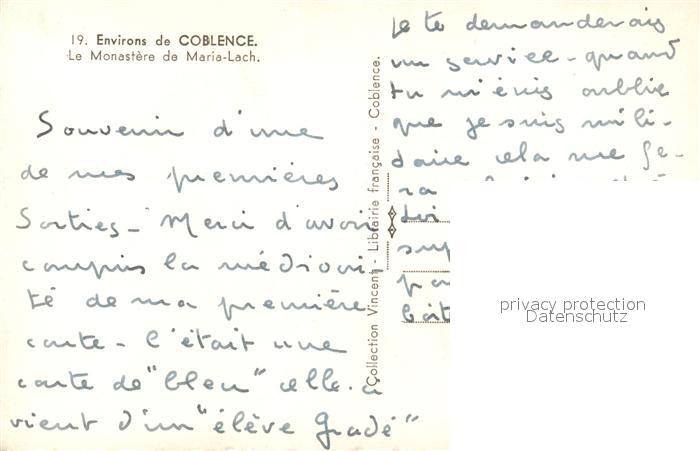 19. Environs de COBLENCE.
Le Monastère de Maria-Lach.
Souvenir d'une
de mes premières
Sorties - Merci d'avoir
compris la médiocri
té de ma première
carte - c'était une
carte de "bleu" celle-ci
vient d'un "élève gradé"
Collection Vincent - Librairie française - Coblence.
je te demanderais
un service - quand
tu m'écris oublie
que je suis mili-
taire cela me fe-
ra
sup
privacy protection
Datenschutz